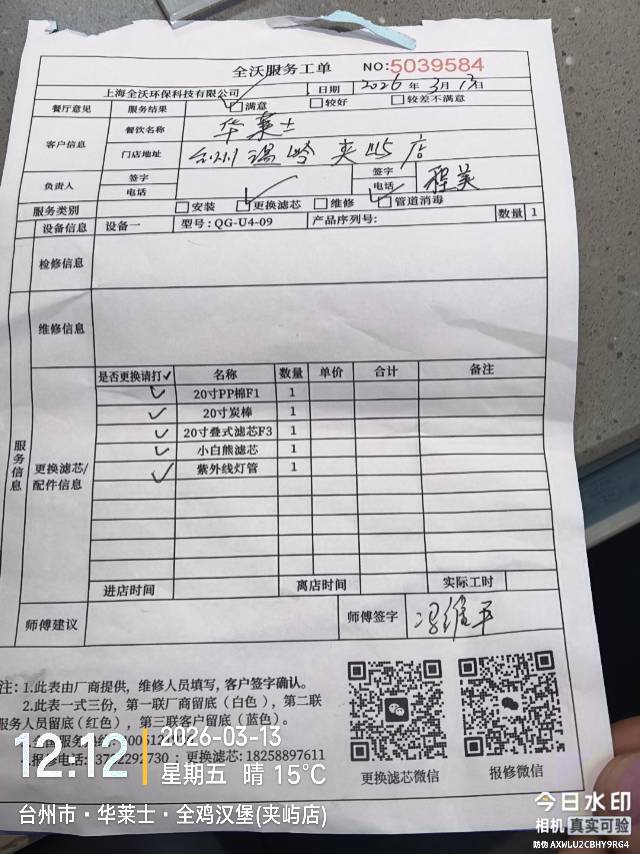 全沃服务工单 NO:5039584
上海全沃环保科技有限公司 日期 2026年3月13日
餐厅意见 服务结果 满意 较好 较差不满意
客户信息 餐饮名称 华莱士
门店地址 台州温岭夹屿店
负责人 签字 电话 签字 电话 程美
服务类别 安装 更换滤芯 维修 管道消毒
设备信息 设备一 型号:QG-U4-09 产品序列号: 数量 1
检修信息
维修信息
服务信息
更换滤芯/配件信息
是否更换请打✓ 名称 数量 单价 合计 备注
✓ 20寸PP棉F1 1
✓ 20寸炭棒 1
✓ 20寸叠式滤芯F3 1
✓ 小白熊滤芯 1
✓ 紫外线灯管 1
进店时间 离店时间 实际工时
师傅建议 师傅签字 冯维平
注:1.此表由厂商提供,维修人员填写,客户签字确认。
2.此表一式三份,第一联厂商留底(白色),第二联
服务人员留底(红色),第三联客户留底(蓝色)。
更换滤芯:18258897611
更换滤芯微信 报修微信
12.12 2026-03-13
星期五 晴 15℃
台州市·华莱士·全鸡汉堡(夹屿店)
今日水印
相机 真实可验
防伪 AXWLU2CBHY9RG4